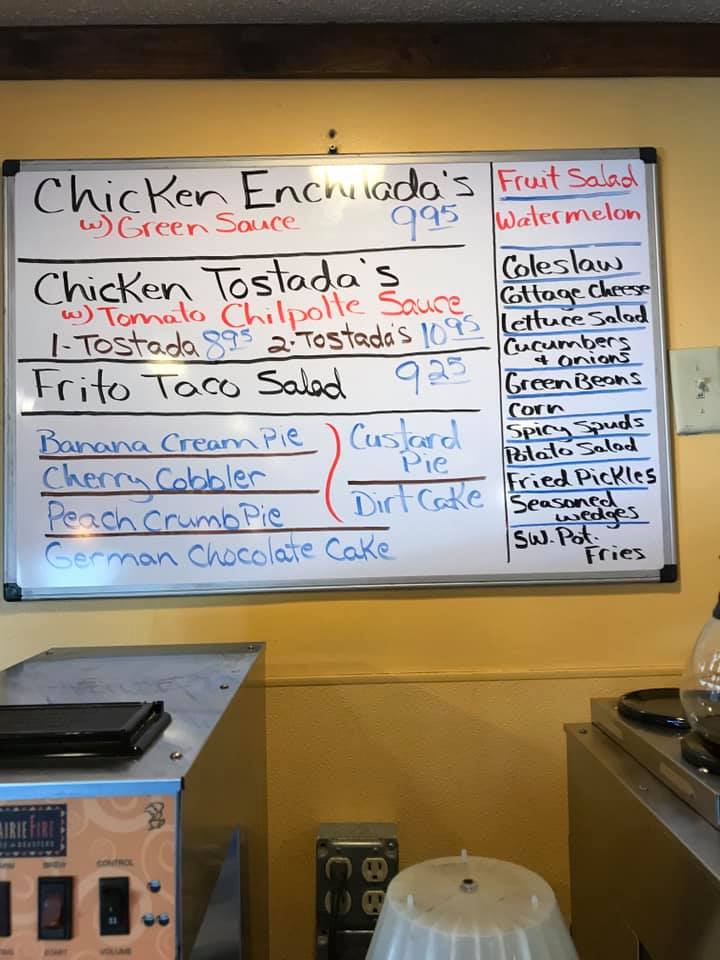 Chicken Enchilada's
w) Green Sauce 9 95
Chicken Tostada's
w) Tomato Chilpolte Sauce
1-Tostada 8 95 2-Tostada's 10 95
Frito Taco Salad 9 25
Banana Cream Pie
Cherry Cobbler
Peach Crumb Pie
German Chocolate Cake
Custard
Pie
Dirt Cake
Fruit Salad
Watermelon
Coleslaw
Cottage Cheese
Lettuce Salad
Cucumbers
& onions
Green Beans
Corn
Spicy Spuds
Potato Salad
Fried Pickles
Seasoned
wedges
SW. Pot.
Fries
FIRE
BREW
CONTROL
START
VOLUME